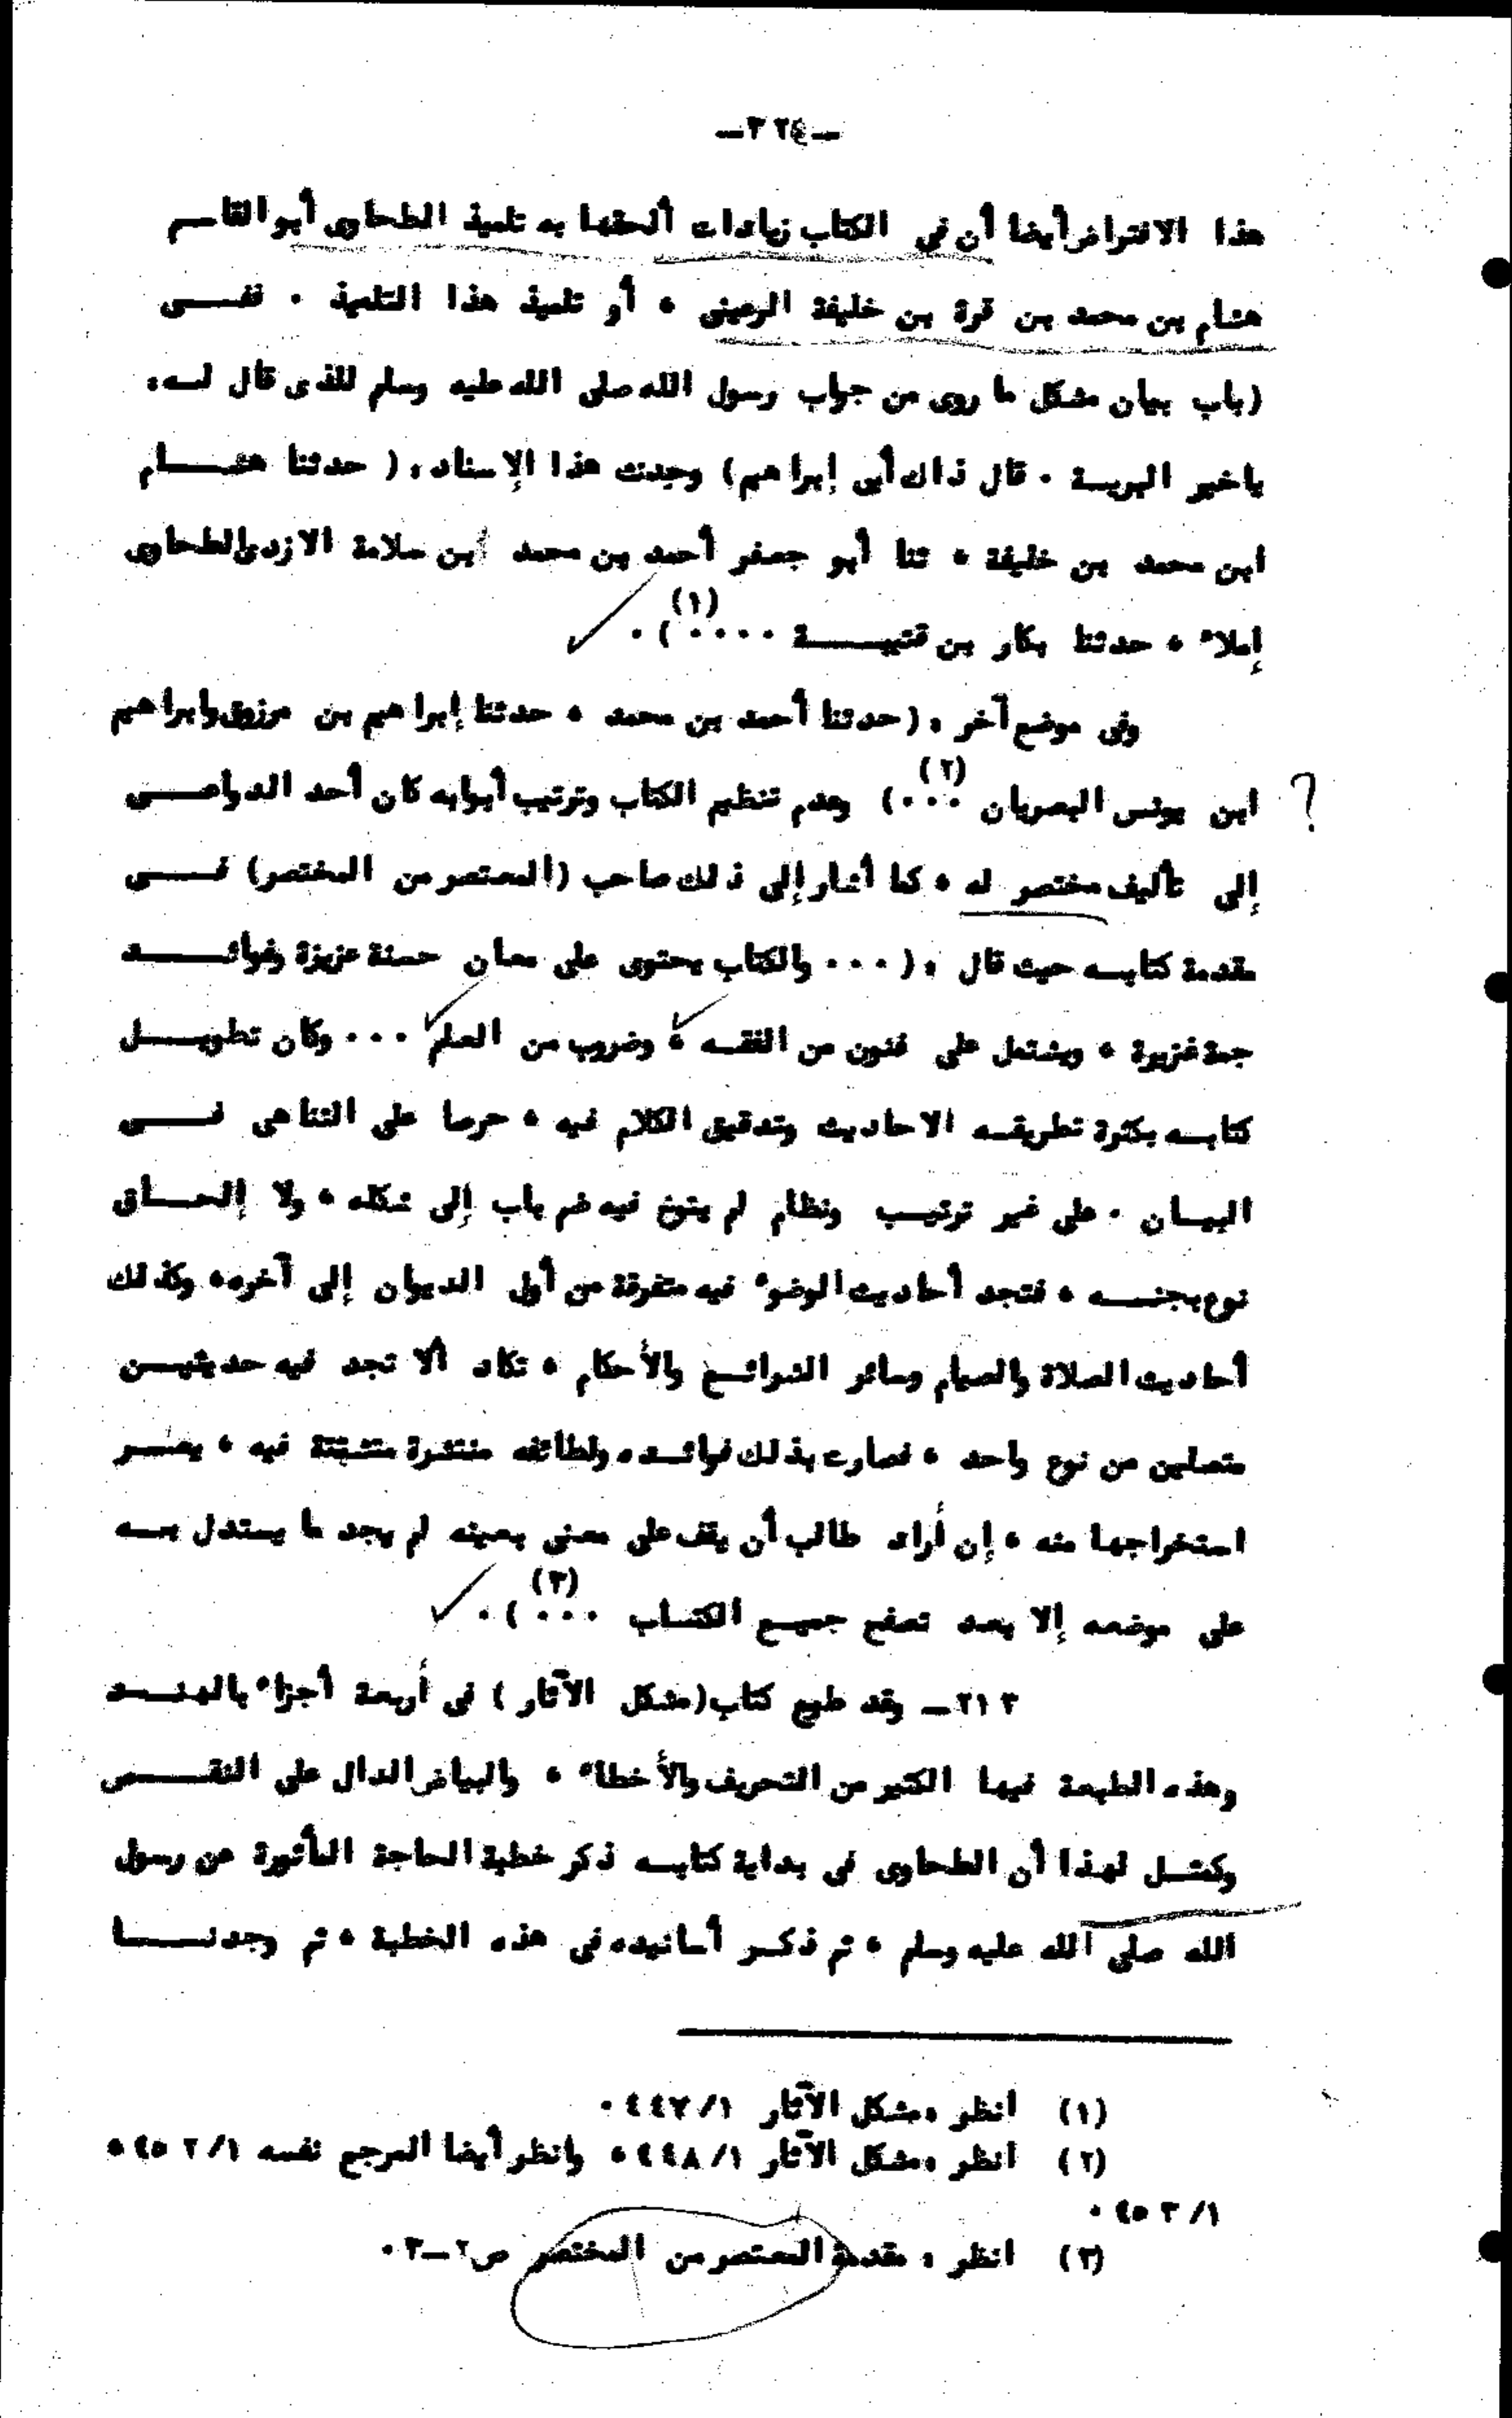 ـ٣٢٤ـ
هذا الافتراض أيضا أن في الكتاب زيادات ألحقها به تلميذ الطحاوى أبو القاسم
هشام بن محمد بن قرة بن خليفة الرعينى ، أو تلميذ هذا التلميذ . ففـــى
(باب بيان مشكل ما روى من جواب رسول الله صلى الله عليه وسلم للذى قال لـه،
ياخير البريـة . قال ذاك أبى إبراهيم) وجدت هذا الإسناد ، ( حدثنا هشـــام
ابن محمد بن خليفة ، ثنا أبو جعفر أحمد بن محمد ابن سلامة الازدى الطحاوى
إملاء ، حدثنا بكار بن قتيبـــة ٠٠٠٠ (١) ) .
وفى موضع آخر ، (حدثنا أحمد بن محمد ، حدثنا إبراهيم بن مرزوق وابراهيم
ابن يونس البصريان ٠٠٠ (٢) ) وعدم تنظيم الكتاب وترتيب أبوابه كان أحد الدواعـــى ?
إلى تأليف مختصر له ، كما أشار إلى ذلك صاحب (المعتصر من المختصر) فـــى
مقدمة كتابـه حيث قال ، ( ٠٠٠ والكتاب يحتوى على معان حسنة عزيزة وفوائـــد
جمة غزيرة ، ويشتمل على فنون من الفقـه ، وضروب من العلم ٠٠٠ وكان تطويـــل
كتابـه بكثرة تطريقـه الاحاديث وتدقيق الكلام فيه ، حرصا على التناهى فـــى
البيـان . على غير ترتيـب ونظام لم يتوخ فيه ضم باب إلى شكله ، ولا إلحـــاق
نوع بجنـــه ، فتجد أحاديث الوضوء فيه متفرقة من أول الديوان إلى آخره ، وكذلك
أحاديث الصلاة والصيام وسائر الشرائـع والأحكام ، تكاد ألا تجد فيه حديثيـــن
متصلين من نوع واحد ، فصارت بذلك فوائـده ولطائفه منتشرة متشتتة فيه ، يعسـر
استخراجها منه ، إن أراد طالب أن يقف على معنى بعينه لم يجد ما يستدل بـــه
على موضعه إلا بعد تصفح جميـع الكتـاب ٠٠٠ (٣) ) .
٢١٣ ـ وقد طبع كتاب (مشكل الآثار ) فى أربعة أجزاء بالهنـــد
وهذه الطبعة فيها الكثير من التحريف والأخطاء ، والبياض الدال على النقـــص
وكمثـل لهذا أن الطحاوى فى بداية كتابـه ذكر خطبة الحاجة المأثورة عن رسول
الله صلى الله عليه وسلم ، ثم ذكـر أسانيده فى هذه الخطبة ، ثم وجدنـــا
(١) انظر ، مشكل الآثار ١/ ٤٤٧ .
(٢) انظر ، مشكل الآثار ١/ ٤٤٨ ، وانظر أيضا المرجع نفسه ١/ ٤٥٢ ،
١/ ٤٥٣ .
(٣) انظر ، مقدمة المعتصر من المختصر ص٢ـ٣ .